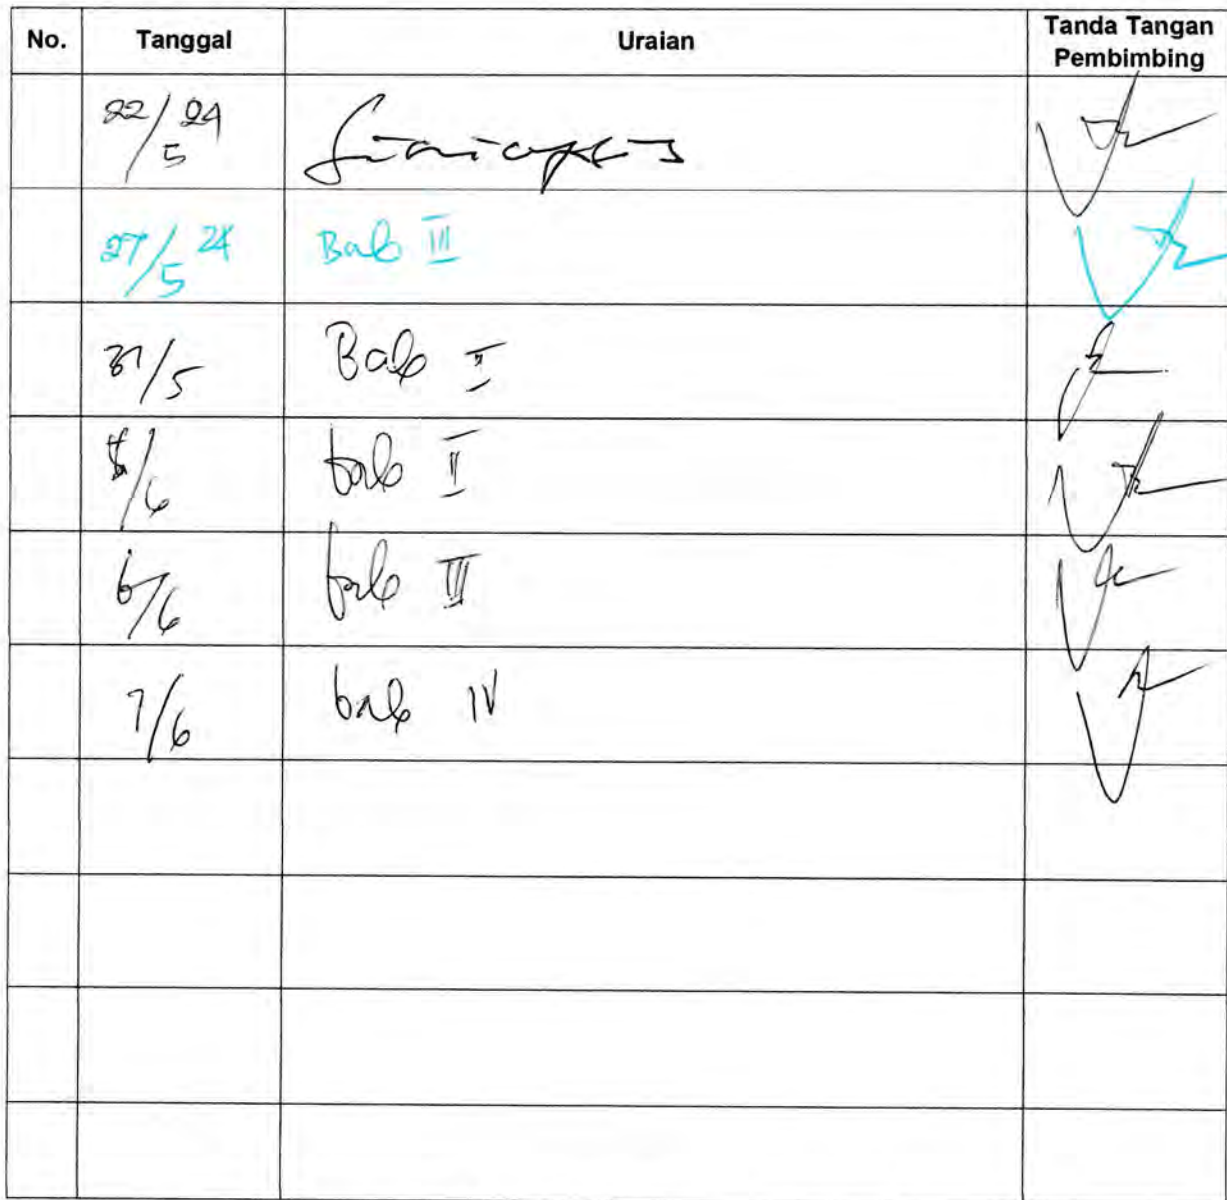 No. Tanggal Uraian Tanda Tangan
Pembimbing
22/5 24
27/5 24 Bab III
31/5 Bab II
/6 bab II
6/6 bab III
7/6 bab IV